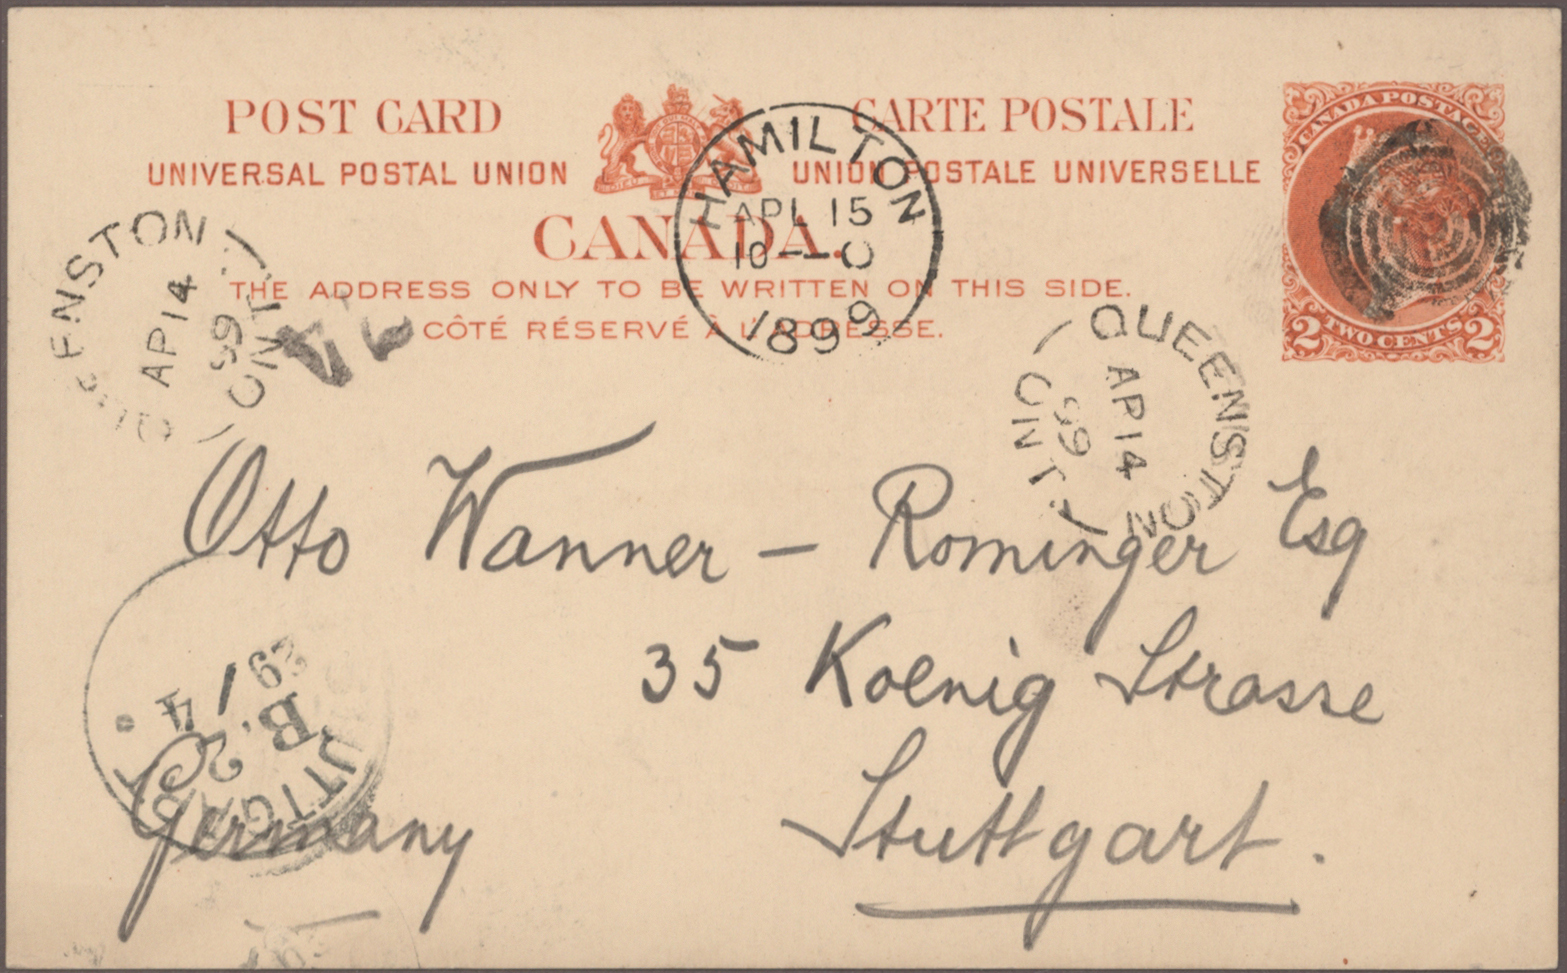 POST CARD CARTE POSTALE
UNIVERSAL POSTAL UNION UNION POSTALE UNIVERSELLE
CANADA.
THE ADDRESS ONLY TO BE WRITTEN ON THIS SIDE.
CÔTÉ RÉSERVÉ À L'ADRESSE.
CANADA POSTAGE
2 TWO CENTS 2
HAMILTON
APL 15
10 — 0
1899
QUEENSTON
AP 14
99
ONT.
QUEENSTON
AP 14
99
ONT.
Otto Wanner - Rominger Esq
35 Koenig Strasse
Stuttgart.
Germany
STUTTGART
2
B.
29 / 4